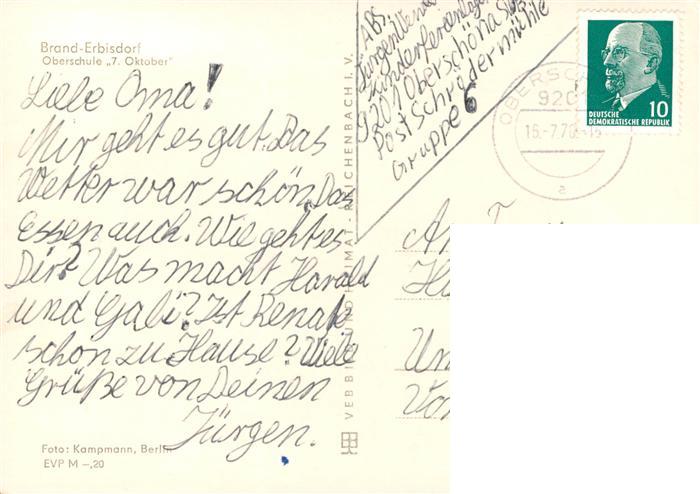 Brand-Erbisdorf
Oberschule „7. Oktober"
Liebe Oma!
Mir geht es gut. Das
Wetter war schön. Das
Essen auch. Wie geht es
Dir? Was macht Harald
und Gabi? Ist Renate
schon zu Hause? Viele
Grüße von Deinen
Jürgen.
Foto: Kampmann, Berlin
EVP M –,20
VEB BILD UND HEIMAT REICHENBACH I. V.
Abs.
Jürgen
Kinderferienlager
9201 Oberschöna
Post Schrödermühle
Gruppe 6
920
16.-7.70
a
10
DEUTSCHE
DEMOKRATISCHE REPUBLIK
An